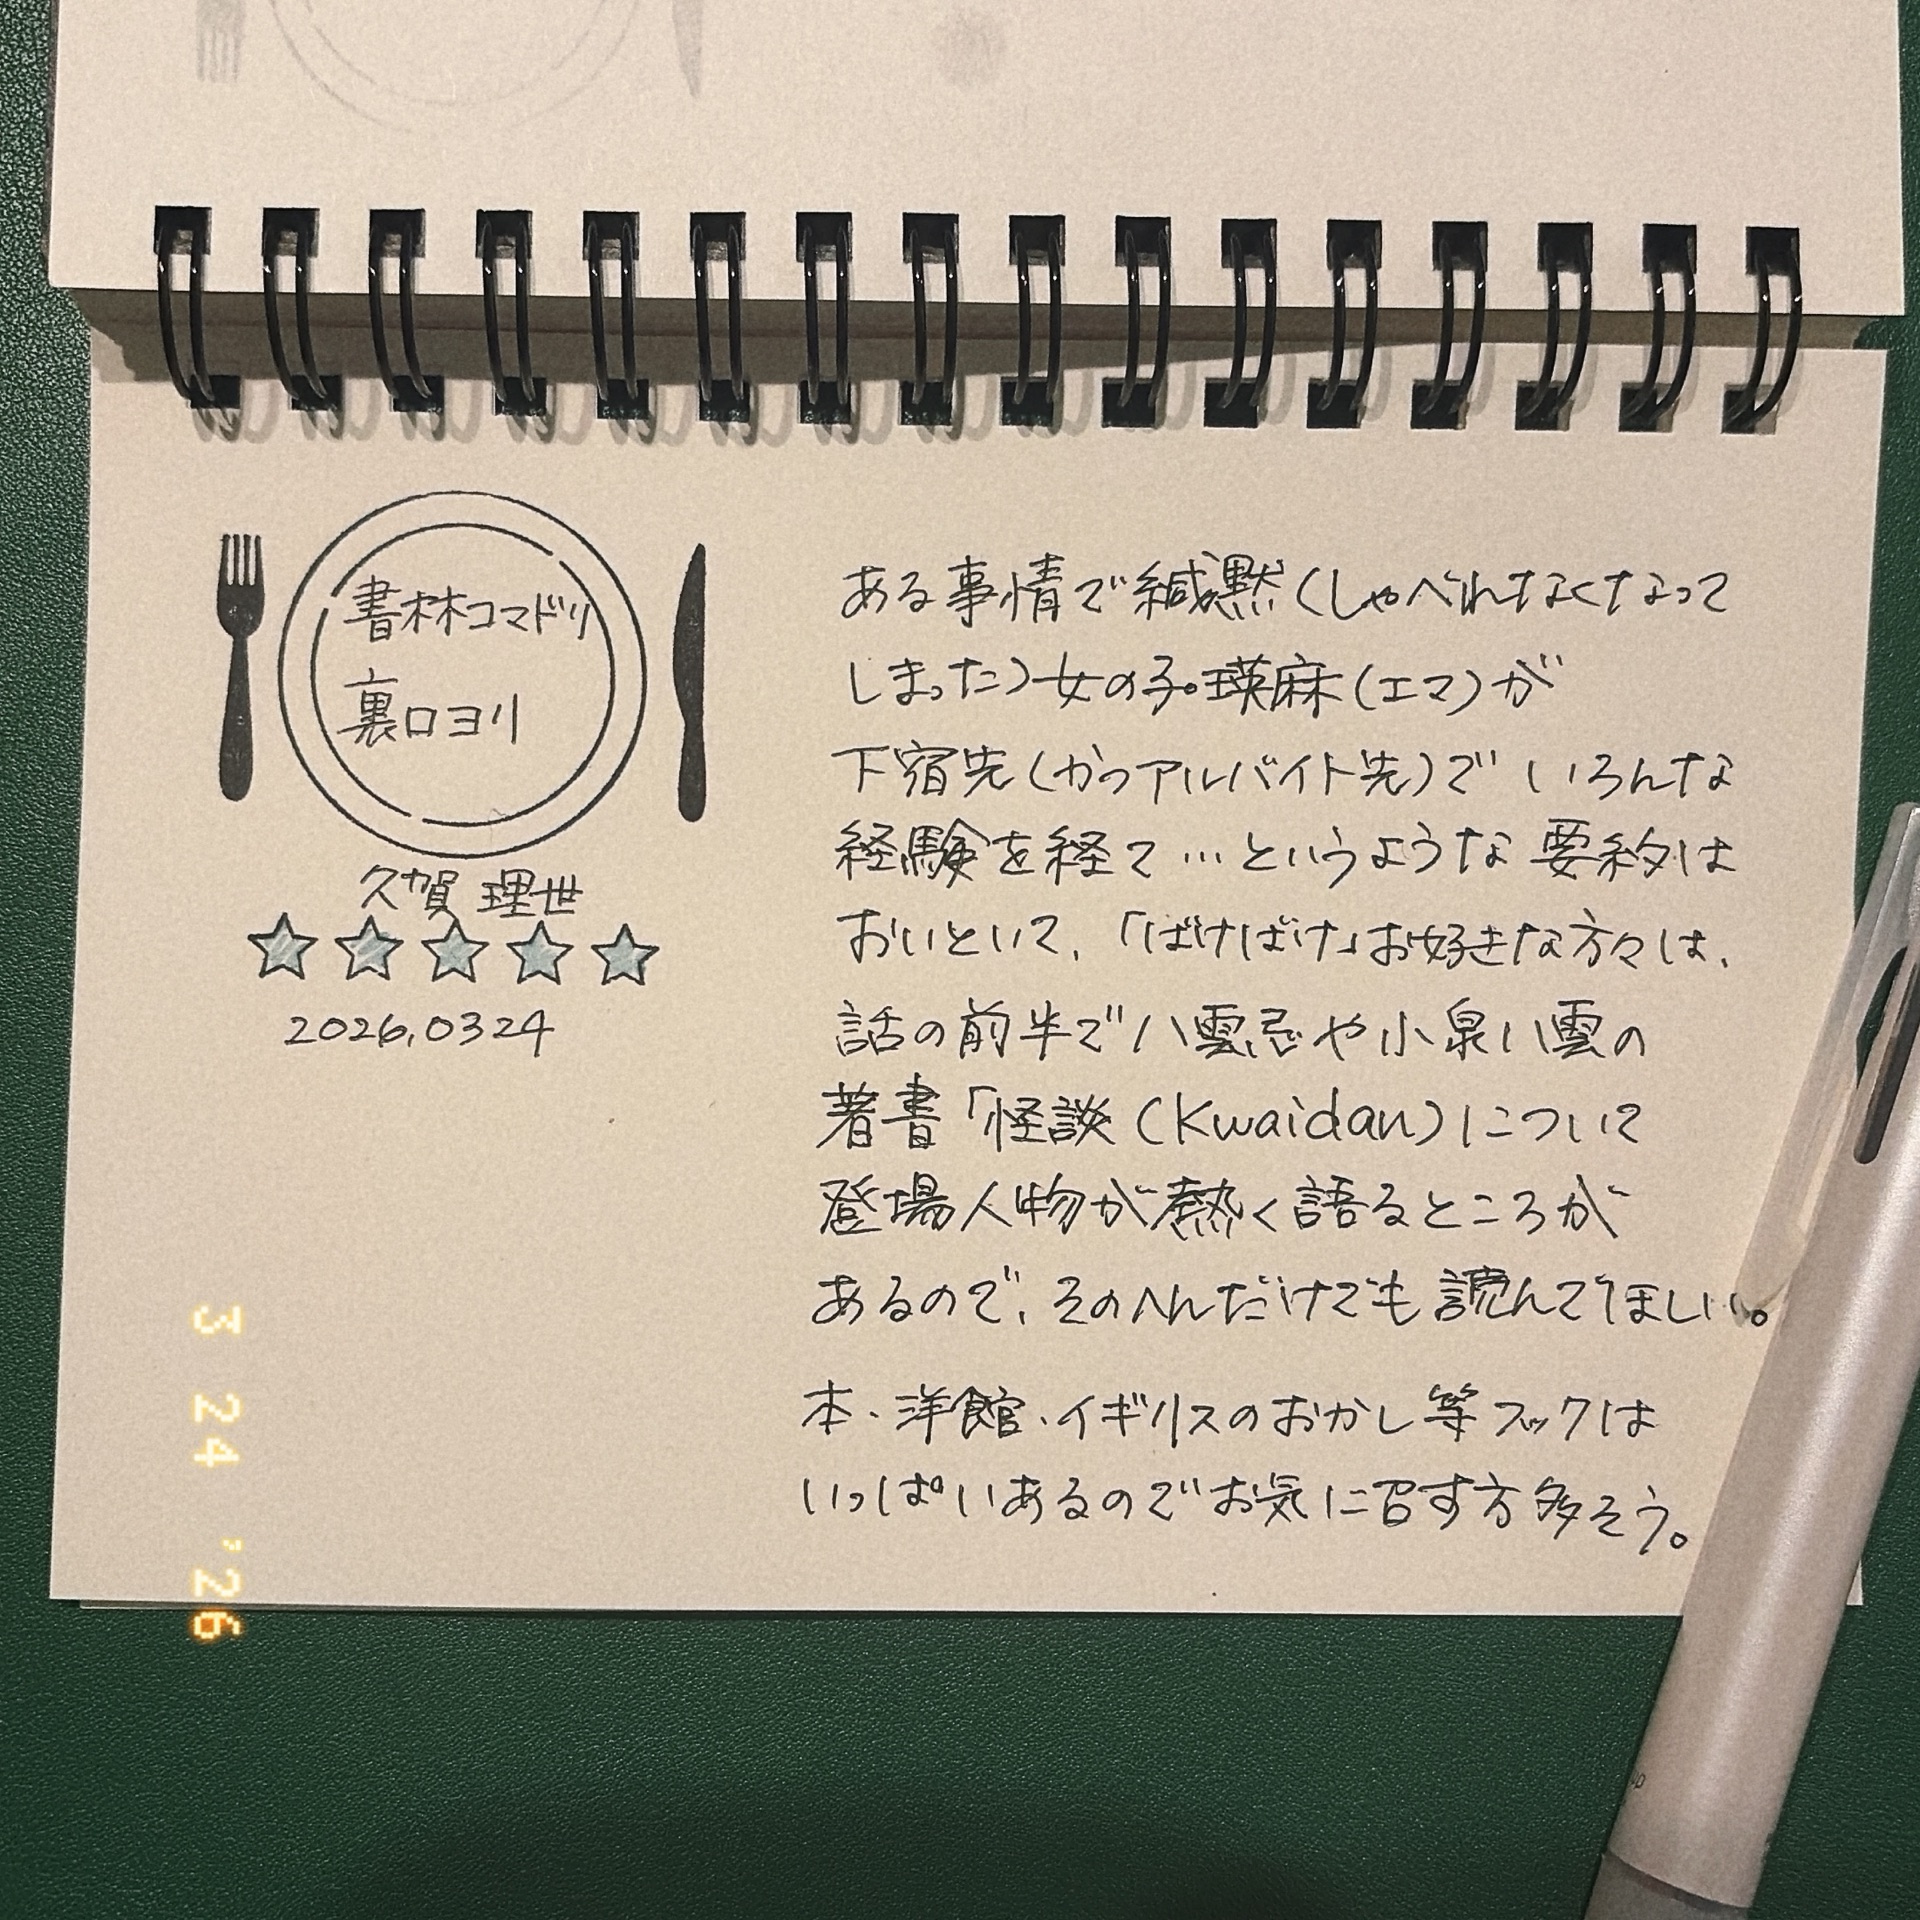 書林コマドリ
裏口ヨリ
久賀 理世
2026.0324
ある事情で緘黙(しゃべれなくなって
しまった)女の子。瑛麻(エマ)が
下宿先(かつアルバイト先)で いろんな
経験を経て…というような 要約は
おいといて、「ばけばけ」お好きな方々は、
話の前半で八雲忌や小泉八雲の
著書「怪談(Kwaidan)について
登場人物が熱く語るところが
あるので、そのへんだけでも読んでほしい。
本、洋館、イギリスのおかし等フックは
いっぱいあるのでお気に召す方多そう。
3 24 '26